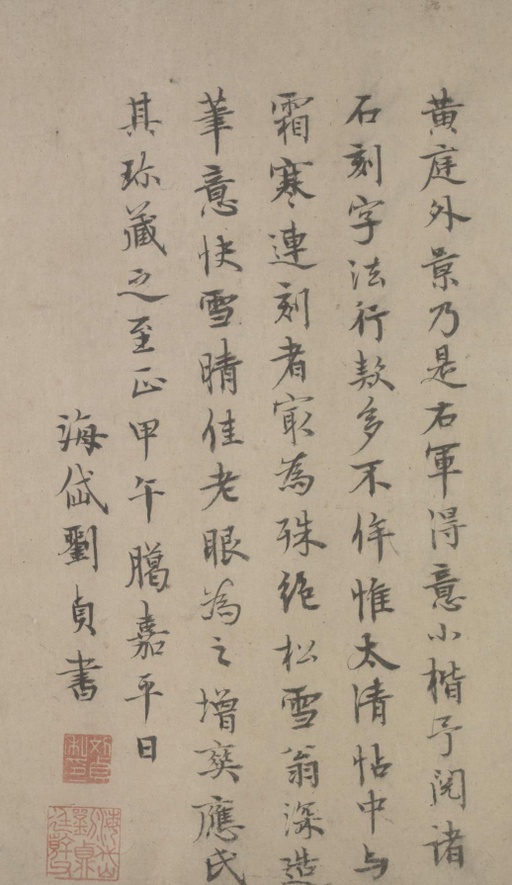 黄庭外景乃是右軍得意小楷予閱諸
石刻字法行款多不侔惟太清帖中与
霜寒連刻者㝡為殊絕松雪翁深造
筆意快雪晴佳老眼為之增爽應氏
其珎藏之至正甲午臈嘉平日
海岱劉貞書